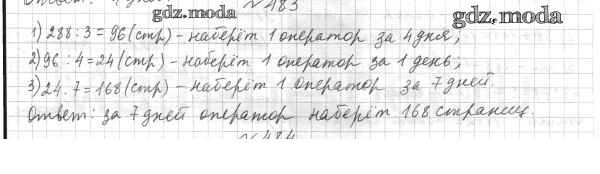 gdz.moda
№483
gdz.moda
1) 288 : 3 = 96 (стр) - наберёт 1 оператор за 4 дня;
2) 96 : 4 = 24 (стр) - наберёт 1 оператор за 1 день;
3) 24 · 7 = 168 (стр) - наберёт 1 оператор за 7 дней.
Ответ: за 7 дней оператор наберёт 168 страниц.
№484